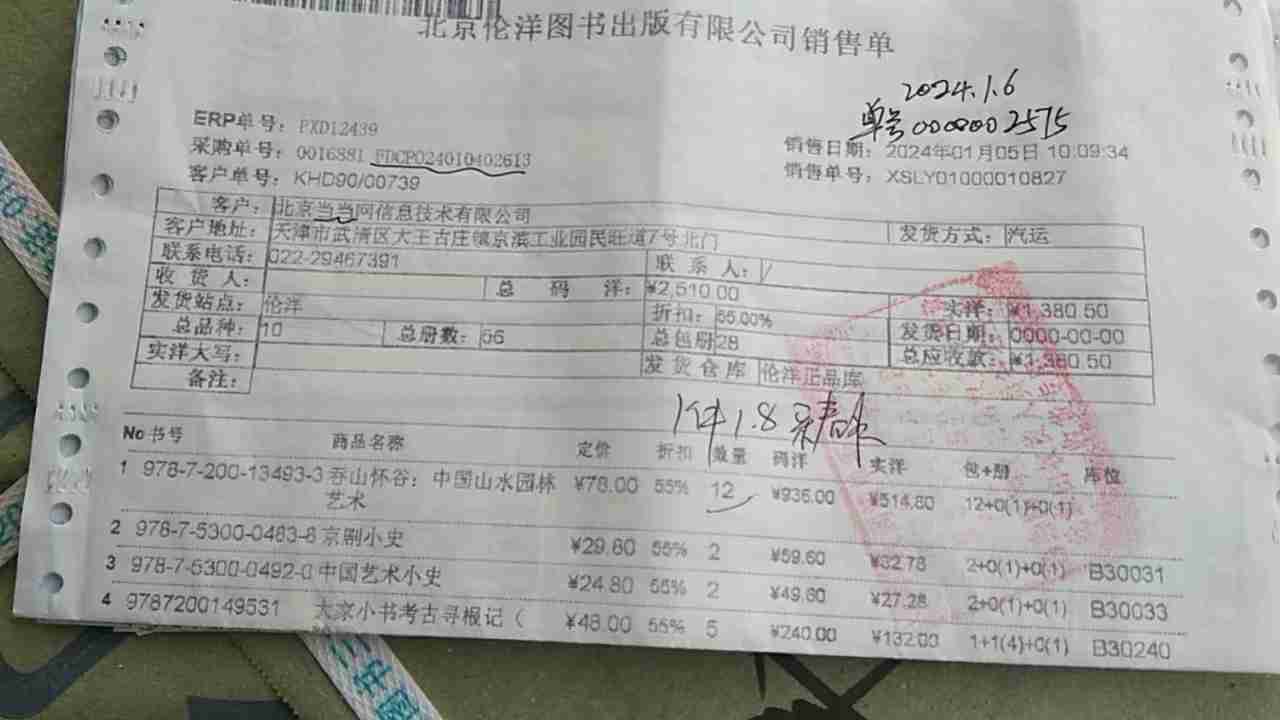 北京伦洋图书出版有限公司销售单
2024.1.6
单号0000002575
ERP单号: PXD12439
采购单号: 0016881 FDCPO24010402613
销售日期: 2024年01月05日 10:09:34
客户单号: KHD90/00739
销售单号: XSLY01000010827
客户: 北京当当网信息技术有限公司
客户地址: 天津市武清区大王古庄镇京滨工业园民旺道7号北门 发货方式: 汽运
联系电话: 022-29467391 联系人: /
收货人: 总码洋: ¥2,510.00 实洋: ¥1,380.50
发货站点: 伦洋 折扣: 55.00% 发货日期: 0000-00-00
总品种: 10 总册数: 56 总包册28 总应收款: ¥1,380.50
实洋大写: 发货仓库 伦洋正品库
备注:
1件1.8
No 书号 商品名称 定价 折扣 数量 码洋 实洋 包+册 库位
1 978-7-200-13493-3 吞山怀谷: 中国山水园林艺术 ¥78.00 55% 12 ¥936.00 ¥514.80 12+0(1)+0(1)
2 978-7-5300-0483-8 京剧小史 ¥29.80 55% 2 ¥59.60 ¥32.78 2+0(1)+0(1) B30031
3 978-7-5300-0492-0 中国艺术小史 ¥24.80 55% 2 ¥49.60 ¥27.28 2+0(1)+0(1) B30033
4 9787200149531 大家小书考古寻根记( ¥48.00 55% 5 ¥240.00 ¥132.00 1+1(4)+0(1) B30240